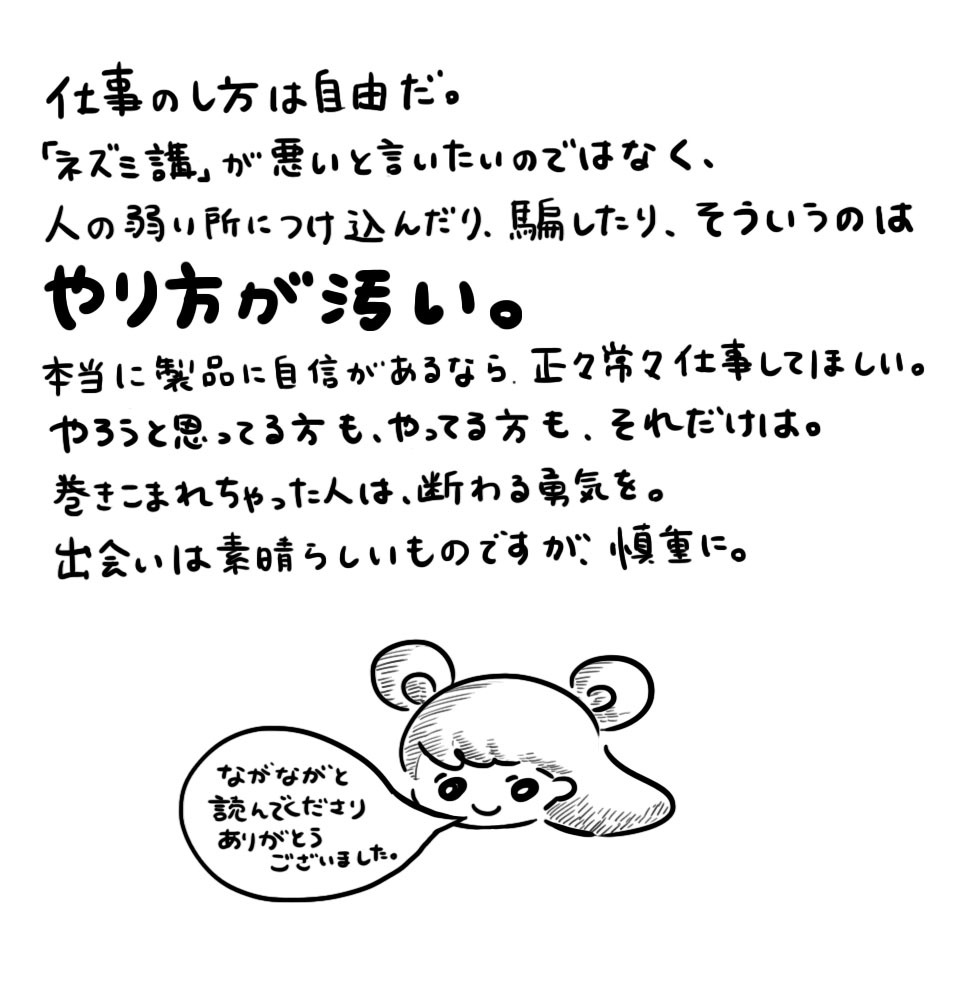 仕事のし方は自由だ。
「ネズミ講」が悪いと言いたいのではなく、
人の弱い所につけ込んだり、騙したり、そういうのは
やり方が汚い。
本当に製品に自信があるなら、正々常々仕事してほしい。
やろうと思ってる方も、やってる方も、それだけは。
巻きこまれちゃった人は、断わる勇気を。
出会いは素晴らしいものですが、慎重に。
ながながと
読んでくださり
ありがとう
ございました。